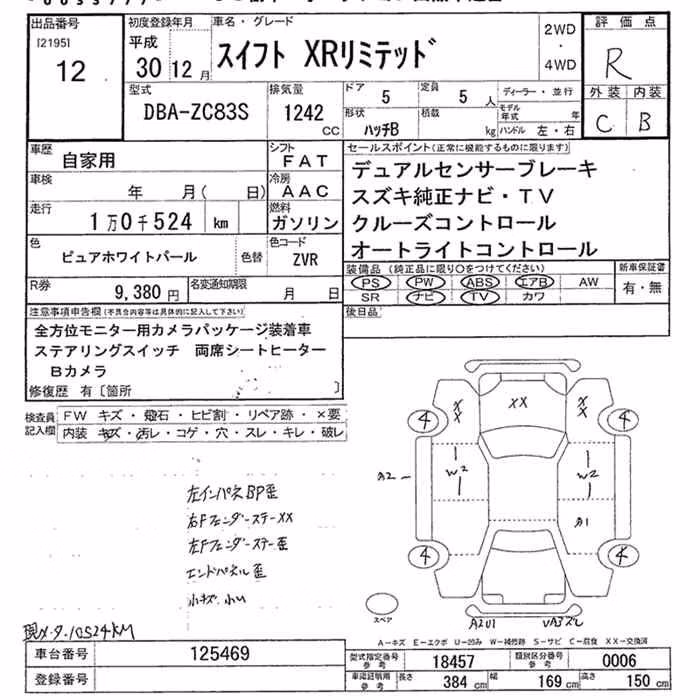 出品番号
[21951
12
初度登録年月
平成
30 12月
車名・グレード
スイフト XRリミテッド
2WD
・
4WD
評価点
R
外装 内装
C B
型式
DBA-ZC83S
排気量
1242
CC
ドア
5
定員
5人
形状
ハッチB
積載
kg
ディーラー・並行
モデル年式 年
ハンドル 左・右
車歴
自家用
シフト
FAT
車検
年 月( 日)
冷房
AAC
走行
1万0千524 km
燃料
ガソリン
色
ピュアホワイトパール
色替
色コード
ZVR
R券
9,380円
名変通知期限
月 日
セールスポイント(正常に機能するものに限ります)
デュアルセンサーブレーキ
スズキ純正ナビ・TV
クルーズコントロール
オートライトコントロール
装備品(純正品に限り○をつけてください)
PS PW ABS エアB AW
SR ナビ TV カワ
新車保証書
有・無
後日品
注意事項申告欄(不具合内容等は具体的に記入して下さい)
全方位モニター用カメラパッケージ装着車
ステアリングスイッチ 両席シートヒーター
Bカメラ
修復歴 有〔箇所 〕
検査員記入欄
FW キズ・飛石・ヒビ割・リペア跡・×要
内装 キズ・汚レ・コゲ・穴・スレ・キレ・破レ
左インパネBP歪
右Fフェンダーステー××
左Fフェンダーステー歪
エンドパネル歪
小キズ・小U
現メータ・10524KM
XX
XX
XX
4
4
A2
W2
W2
A1
4
4
スペア
A2U1
A-キズ E-エクボ U-凹み W-補修跡 S-サビ C-腐食 XX-交換済
車台番号
125469
登録番号
型式指定番号
参考
18457
類別区分番号
参考
0006
車認証転用
参考
長さ
384 cm
幅
169 cm
高さ
150 cm